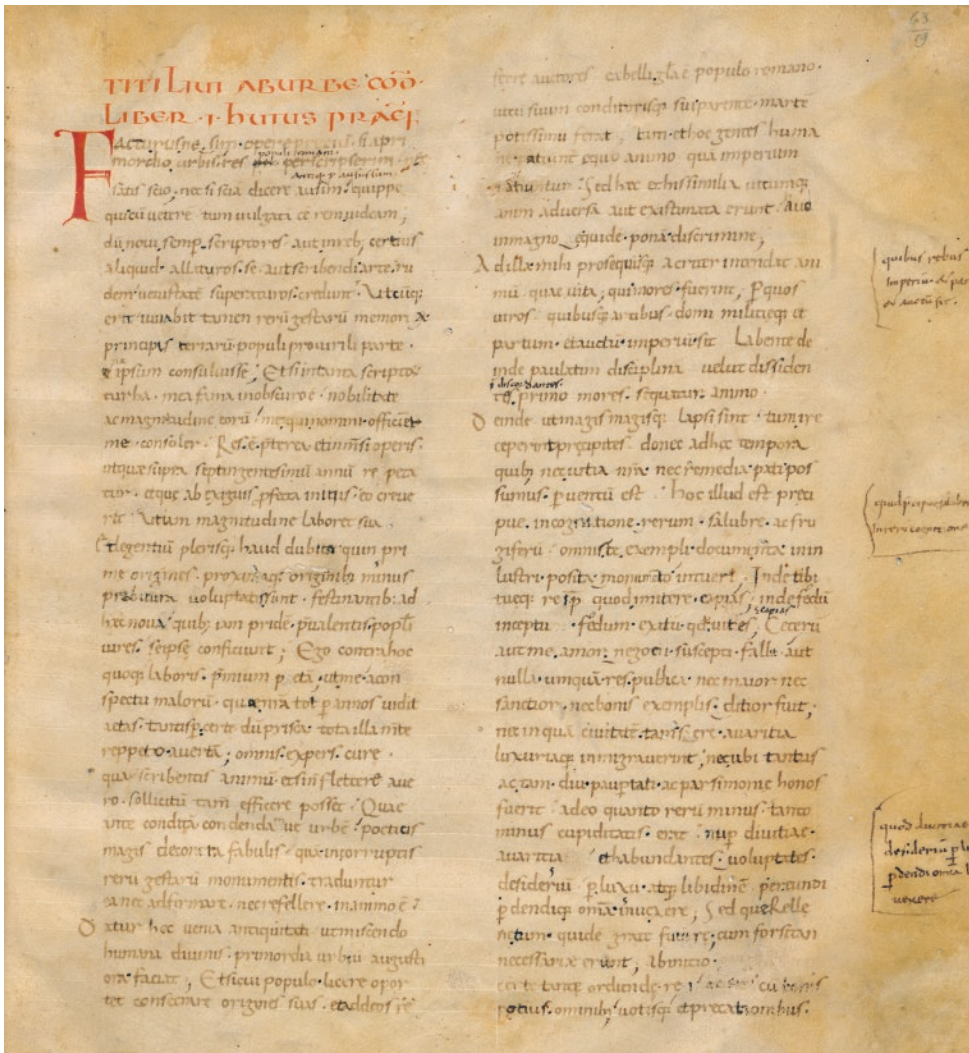 TITI LIVII AB URBE CŌD̄·
LIBER · I · HUIUS PRAEF̄
Facturusne sim opere p̄cium si a pri
populi romani
mordio urbis res perscripserim
satis scio · nec si sciā dicere ausim · quippe
qui cū uetere tum uulgatā ēē rem uideam;
dū noui semp̄ scriptores aut in reb; certius
aliquid allaturos se aut scribendi arte ru
dem uetustatē superaturos credunt · Vtcūq;
erit iuuabit tamen rerū gestarū memoriæ
principis terrarū populi pro uirili parte ·
& ipsum consuluisse; Et si in tanta scriptorū
turba · mea fama in obscuro ē · nobilitate
ac magnitudine eorū meo qui nomini officient
me · consoler · Res ē p̄terea et inm̄si operis ·
ut quæ supra septingentesimū annū repeta
tur · et quę ab exiguis p̄fecta initiis eo creue
rit · Vt iam magnitudine laboret sua
Et legentiū plerisq; haud dubito quin pri
mę origines · proximaq; originib; minus
prębitura uoluptatis sint · festinantib; ad
hęc noua quib; iam pridē p̄ualentis popl̄i
uires · se ipsę conficiunt; Ego contra hoc
quoq; laboris · p̄mium petā, ut me a con
spectu malorū · quę n̄ra tot p̄ annos uidit
aetas · tantisp̄ certe dū prisca tota illa m̄te
reppeto auertā; omnis · expers · curę ·
quæ scribentis animū etsi n̄ flectere a ue
ro · sollicitū tam̄ efficere posset · Quae
ante conditā condendāue urbē poeticis
magis decora fabulis quā incorruptis
rerū gestarū monumentis · traduntur
ea nec adfirmare · nec refellere · in animo ē ·
Datur hęc uenia antiquitati ut miscendo
humana diuinis · primordia urbiū augusti
ora faciat; Et si cui populo licere opor
tet consecrare origines suas · et ad deos re
ferre auctores ea belli gl̄a ē populo romano ·
ut cū suum conditorisq; sui parentē · martē
potissimū ferat, tam et hoc gentes huma
nę patiantur ęquo animo quā imperium
patiuntur · Sed hęc et his similia utcumq;
animaduersa aut existimata erunt · haud
in magno equidē ponā discrimine,
Ad illa mihi pro se quisq; acriter intendat ani
mū · quae uita, qui mores · fuerint, p̄ quos
uiros · quibusq; artibus · domi militięq; et
partum · et auctū imperiū sit · Labente de
inde paulatim disciplina uelut dissiden
tes primo mores · sequatur animo ·
Deinde ut magis magisq; lapsi sint · tum ire
ceperint pręcipites · donec ad hęc tempora
quib; nec uitia n̄ra nec remedia pati pos
sumus · p̄uentū est · Hoc illud est pręci
pue in cognitione rerum · salubre · ac fru
giferū omnis te exempli documenta in in
lustri posita monumento intueri, Inde tibi
tuęq; rei p̄ quod imitere · capias; inde fędū
inceptu · fędum · exitu · qd̄ uites; Ceterū
aut me · amor · negotii suscepti · fallit · aut
nulla umquā res publica nec maior nec
sanctior · nec bonis exemplis · ditior fuit;
nec in quā ciuitatē tam serę auaritia
luxuriaq; inmigrauerint; nec ubi tantus
ac tam · diu paup̄tati · ac parsimonię honos
fuerit · adeo quanto rerū minus · tanto
minus cupiditatis · erat · nup̄ diuitiae ·
auaritiā et habundantes · uoluptates ·
desideriū p̄ luxū atq; libidinē pereundi
p̄dendiq; omīa inuexere; Sed querellę
ne tum quidē gratę futurę; cum forsitan
necessarię erunt, ab initio ·
certe tantę ordiendę rei absint · cū bonis
potius · ominib; uotisq; et precationibus ·
quibus rebus
imperiū & par
& auctū sit ·